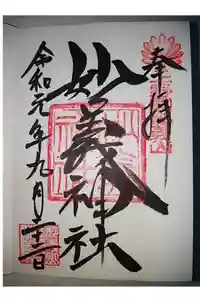 奉拝
妙義神社
令和元年九月二十二日